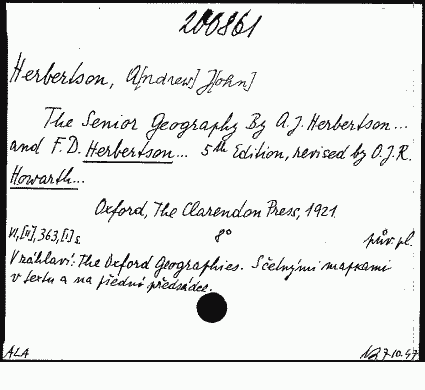 200861
Herbertson, A[ndrew] J[ohn]
The Senior Geography By A.J. Herbertson...
and F.D. Herbertson... 5th Edition, revised by O.J.R.
Howarth...
Oxford, The Clarendon Press, 1921
VI,[II],363,[I] s. 8° pův. pl.
V záhlaví: The Oxford Geographies. S četnými mapkami
v textu a na přední předsádce.
ALA 7.10.47